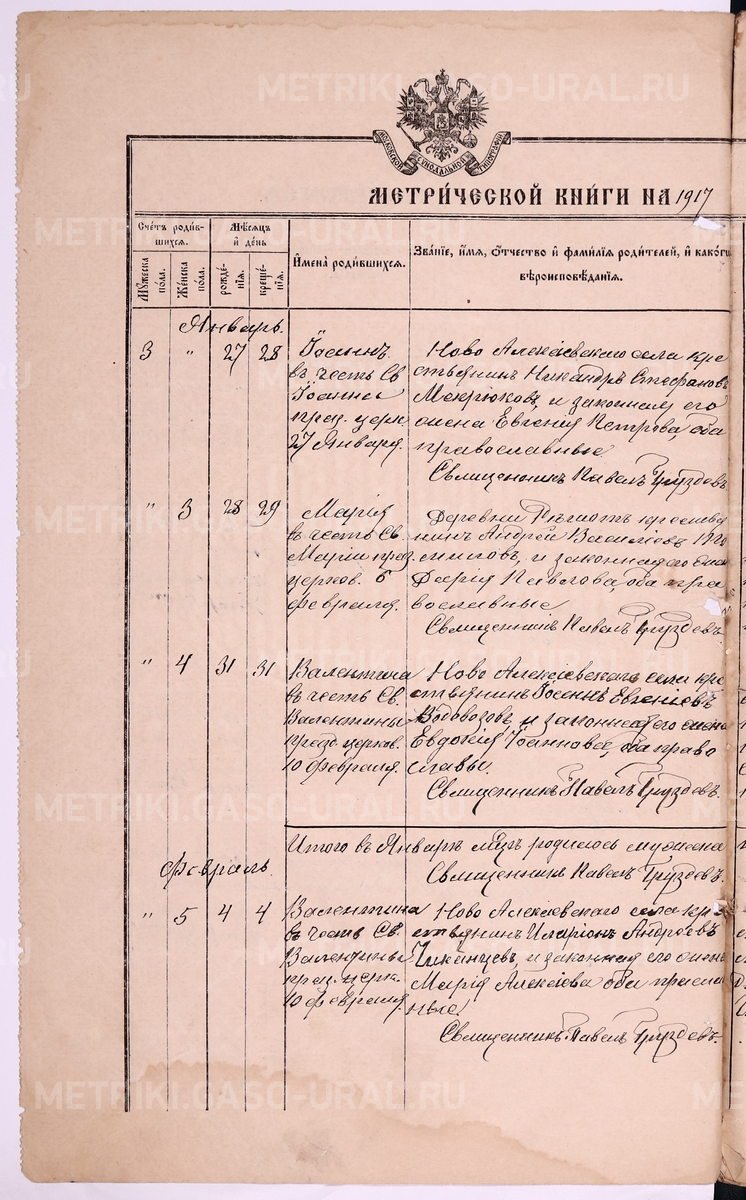 METRIKI.GASO-URAL.RU
МОСКОВСКОЙ СѴНОДАЛЬНОЙ ТИПОГРАФІИ
МЕТРИ́ЧЕСКОЙ КНИ́ГИ НА 1917
Сче́тъ роди́в-
шихся.
Мѣ́сяцъ
и҆ де́нь
И҆мена̀ роди́вшихся.
Зва́нїе, и҆́мя, ѻ҆́тчество и҆ фами́лїя роди́телей, и҆ како́гѡ
вѣроисповѣ́данїя.
Мꙋ́жеска по́ла.
Же́нска по́ла.
рожде́-нїя.
креще́-нїя.
Январь.
3 " 27 28
Іоаннъ
въ честь Св
Іоанна
праз. церк
27 Января.
Ново Алексѣевскаго села кре
стьянинъ Никандръ Стефановъ
и законная его
жена Евгенія Петрова, оба
православные
Священникъ Павелъ Груздевъ
" 3 28 29
Марія
въ честь Св.
Маріи праз.
церков. 6
февраля.
Деревни крестья
нинъ Андрей Васильевъ
и законная его жена
Дарія оба пра
вославные
Священникъ Павелъ Груздевъ.
" 4 31 31
Валентина
въ честь Св.
Валентины
празд. церков.
10 февраля.
Ново Алексѣевскаго села кре
стьянинъ Іоаннъ Евгеніевъ
Водовозовъ и законная его жена
Евдокія Іоаннова, оба право
славны.
Священникъ Павелъ Груздевъ.
Итого въ Январѣ м-цѣ родилось
Священникъ Павелъ Груздевъ.
Февраль.
" 5 4 4
Валентина
въ честь Св.
Валентины
праз. церк.
10 февраля.
Ново Алексѣевскаго села кре
стьянинъ Иларіонъ Андреевъ
и законная его жена
Марія Алексѣева оба правосла
ные
Священникъ Павелъ Груздевъ.
METRIKI.GASO-URAL.RU